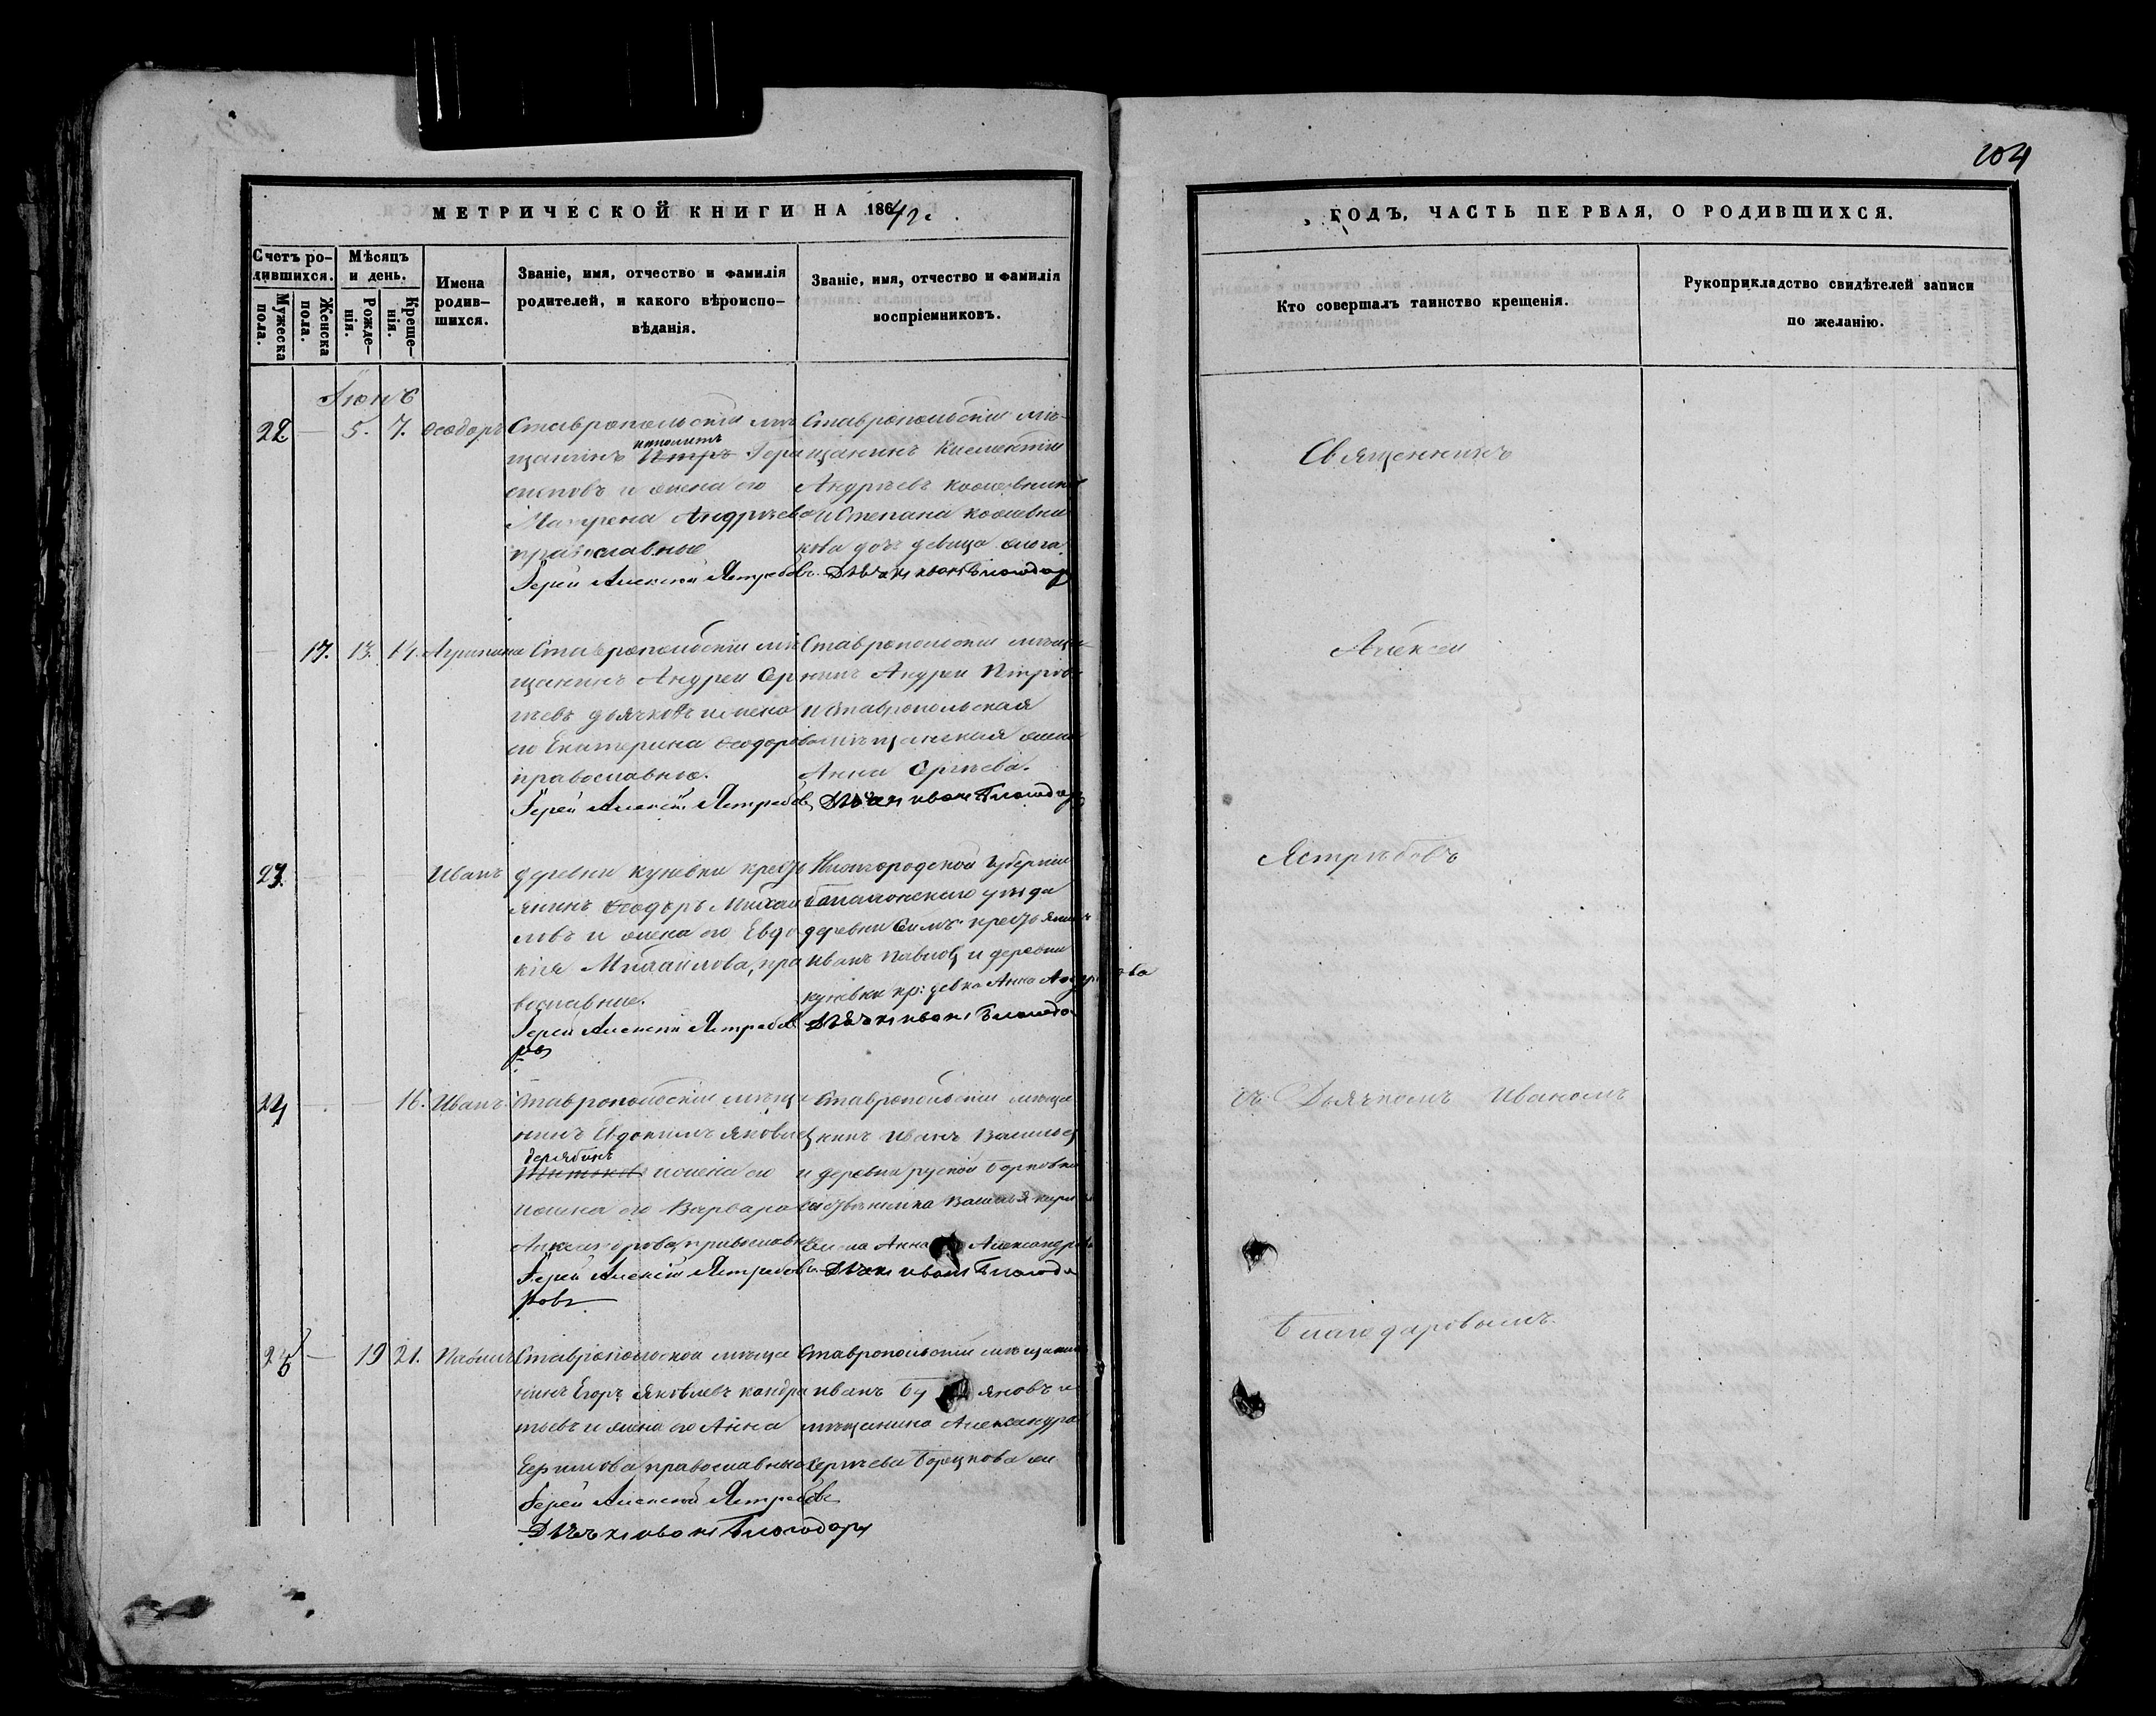 104
МЕТРИЧЕСКОЙ КНИГИ НА 1864 г.
ГОДЪ, ЧАСТЬ ПЕРВАЯ, О РОДИВШИХСЯ.
Счетъ родившихся.
Мужеска пола.
Женска пола.
Мѣсяцъ и день.
Рожде-нія.
Креще-нія.
Имена родив-шихся.
Званіе, имя, отчество и фамилія
родителей, и какого вѣроиспо-
вѣданія.
Званіе, имя, отчество и фамилія
воспріемниковъ.
Кто совершалъ таинство крещенія.
Рукоприкладство свидѣтелей записи
по желанію.
Іюнь
22 — 5. 7. Ѳеодоръ
Ставропольскій мѣ
щанинъ Ипполитъ Гера
симовъ и жена его
Матрена Андрѣева
православные
Іерей Алексей Ястребовъ
Ставропольскій мѣ-
щанинъ
Андрѣевъ Кожевник
и Степана Кожевни
кова дочь девица
Дьячекъ Иванъ Благодар
— 17. 13. 14. Агрипина
Ставропольскій мѣ
щанинъ Андрей Сер
гѣевъ Дьячковъ и жена
его Екатерина Ѳеодорова
православные.
Іерей Алексій Ястребов
Ставропольскій мѣща
нинъ Андрей Петровъ
и Ставропольская
мѣщанская жена
Анна Сергѣева.
Дьячек Иван Благодар
23. — — — Иванъ
деревни Куневки кресть
янинъ Ѳеодоръ Михаи
ловъ и жена его Евдо
кія Михайлова, пра
вославные.
Іерей Алексій Ястребов
Нижегородской губерніи
уѣзда
деревни крестьянинъ
Иванъ Павловъ и деревни
Куневки кр: девка Анна Андреева
Дьячек Иван Благода
ров
24 — — 16. Иванъ
Ставропольскій мѣща
нинъ Евдокимъ Яковлев
Дерябинъ
и жена его
и жена его Варвара
Александрова, православн
Іерей Алексій Ястребовъ
Ставропольскій мѣща
нинъ Иванъ Васильев
и деревни Руской Борковки
Василья
жена Анна Александрова
Дьячек Иван Благода
ровъ
25 — 19 21. Павелъ
Ставропольской мѣща
нинъ Егоръ Яковлевъ Кондра
тьевъ и жена его Анна
православные
Іерей Алексей Ястребовъ
Дьячек Иван Благодар
Ставропольскій мѣщанинъ
Иванъ Бу яновъ и
мѣщанина Александра
Сергѣева Борецкова
Священникъ
Алексей
Ястрѣбовъ
съ Дьячкомъ Иваномъ
Благодаровымъ.